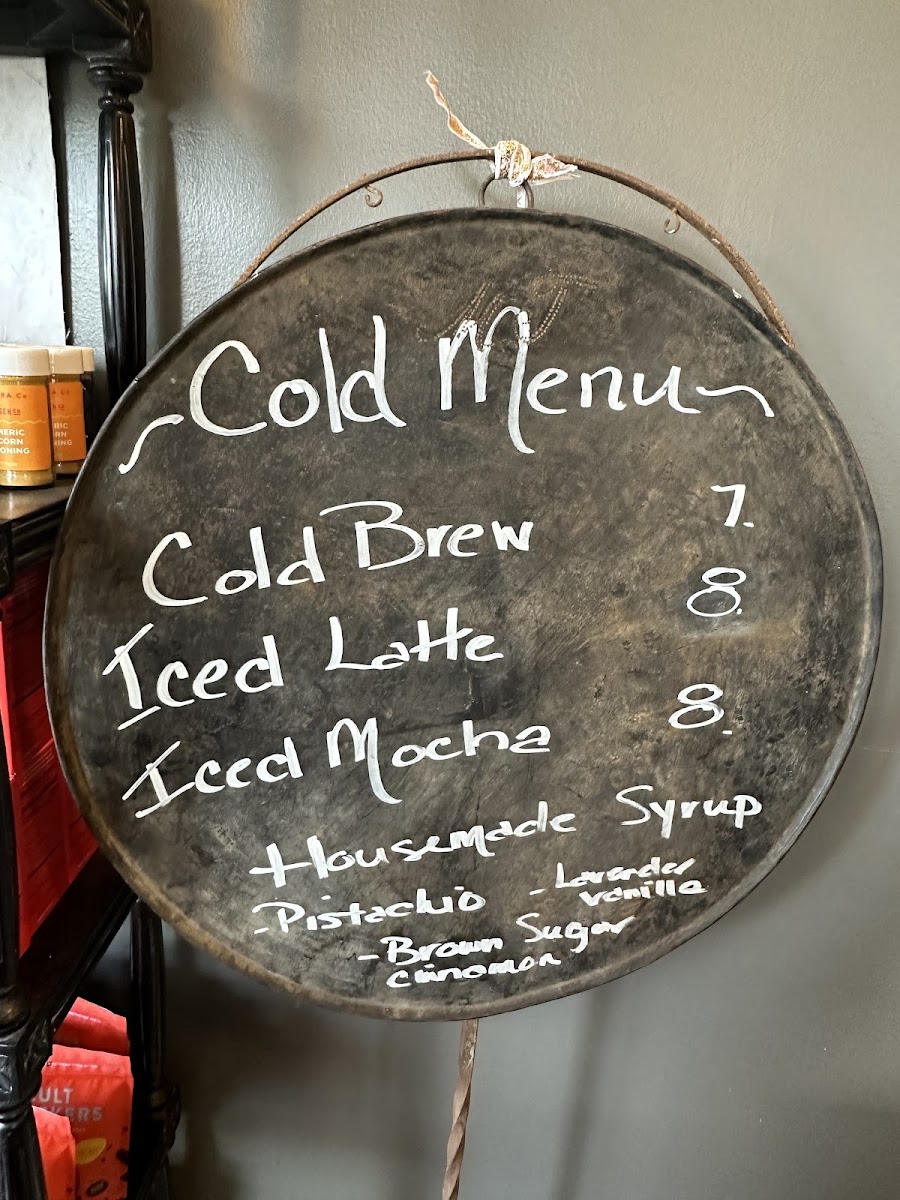 ~Cold Menu~
Cold Brew 7.
Iced Latte 8.
Iced Mocha 8.
Housemade Syrup
-Pistachio - Lavender
vanilla
-Brown Sugar
cinnamon
MERIC
CORN
ONING
RIC
RN
NING
ULT
KERS